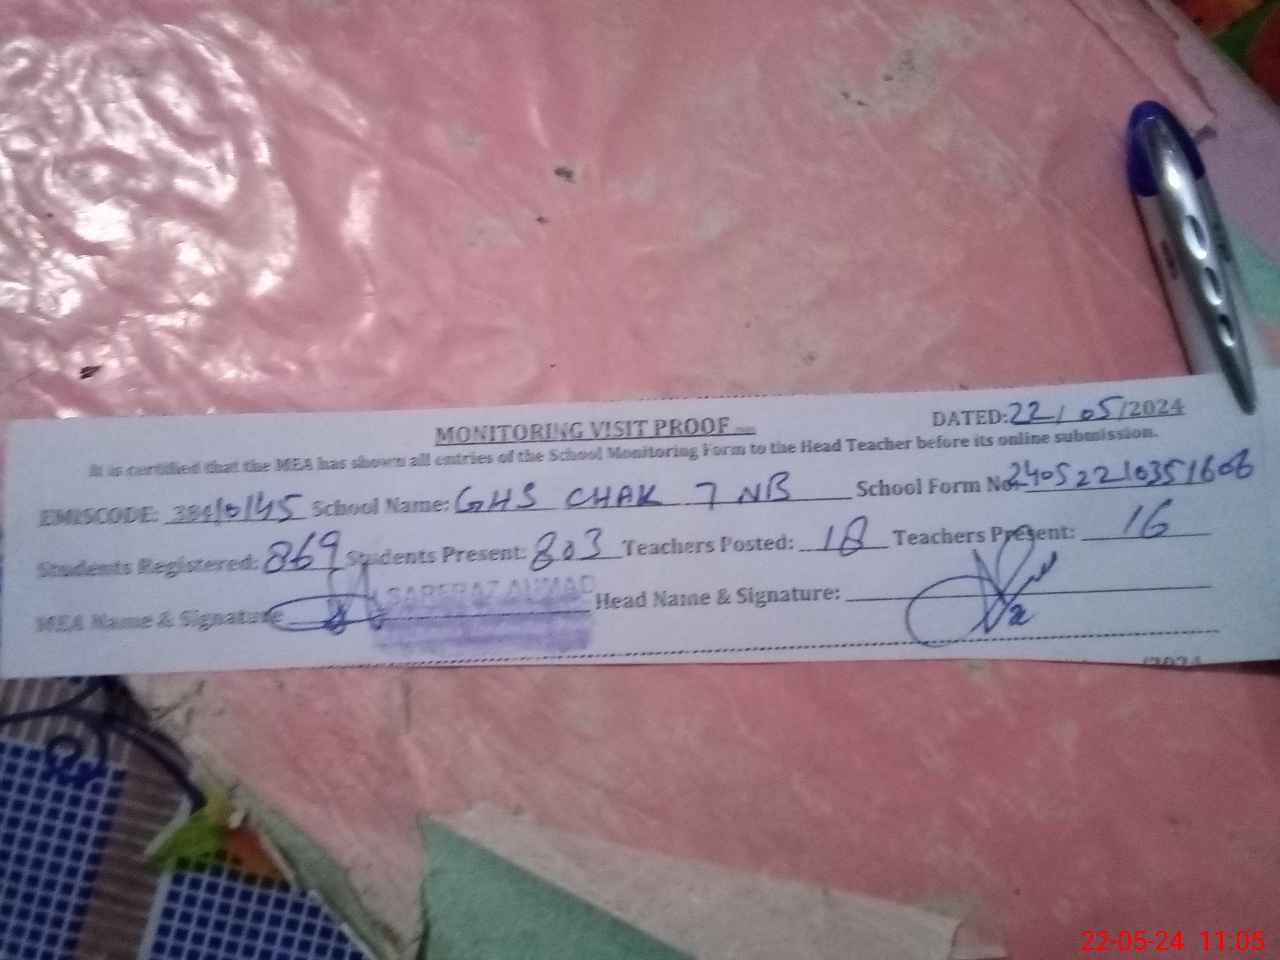 MONITORING VISIT PROOF
DATED: 22/05/2024
It is certified that the MEA has shown all entries of the School Monitoring Form to the Head Teacher before its online submission.
EMISCODE: School Name: GHS CHAK 7 NB School Form No: 24052210351606
Students Registered: 869 Students Present: 803 Teachers Posted: 18 Teachers Present: 16
MEA Name & Signature Head Name & Signature:
/2024
22-05-24 11:05